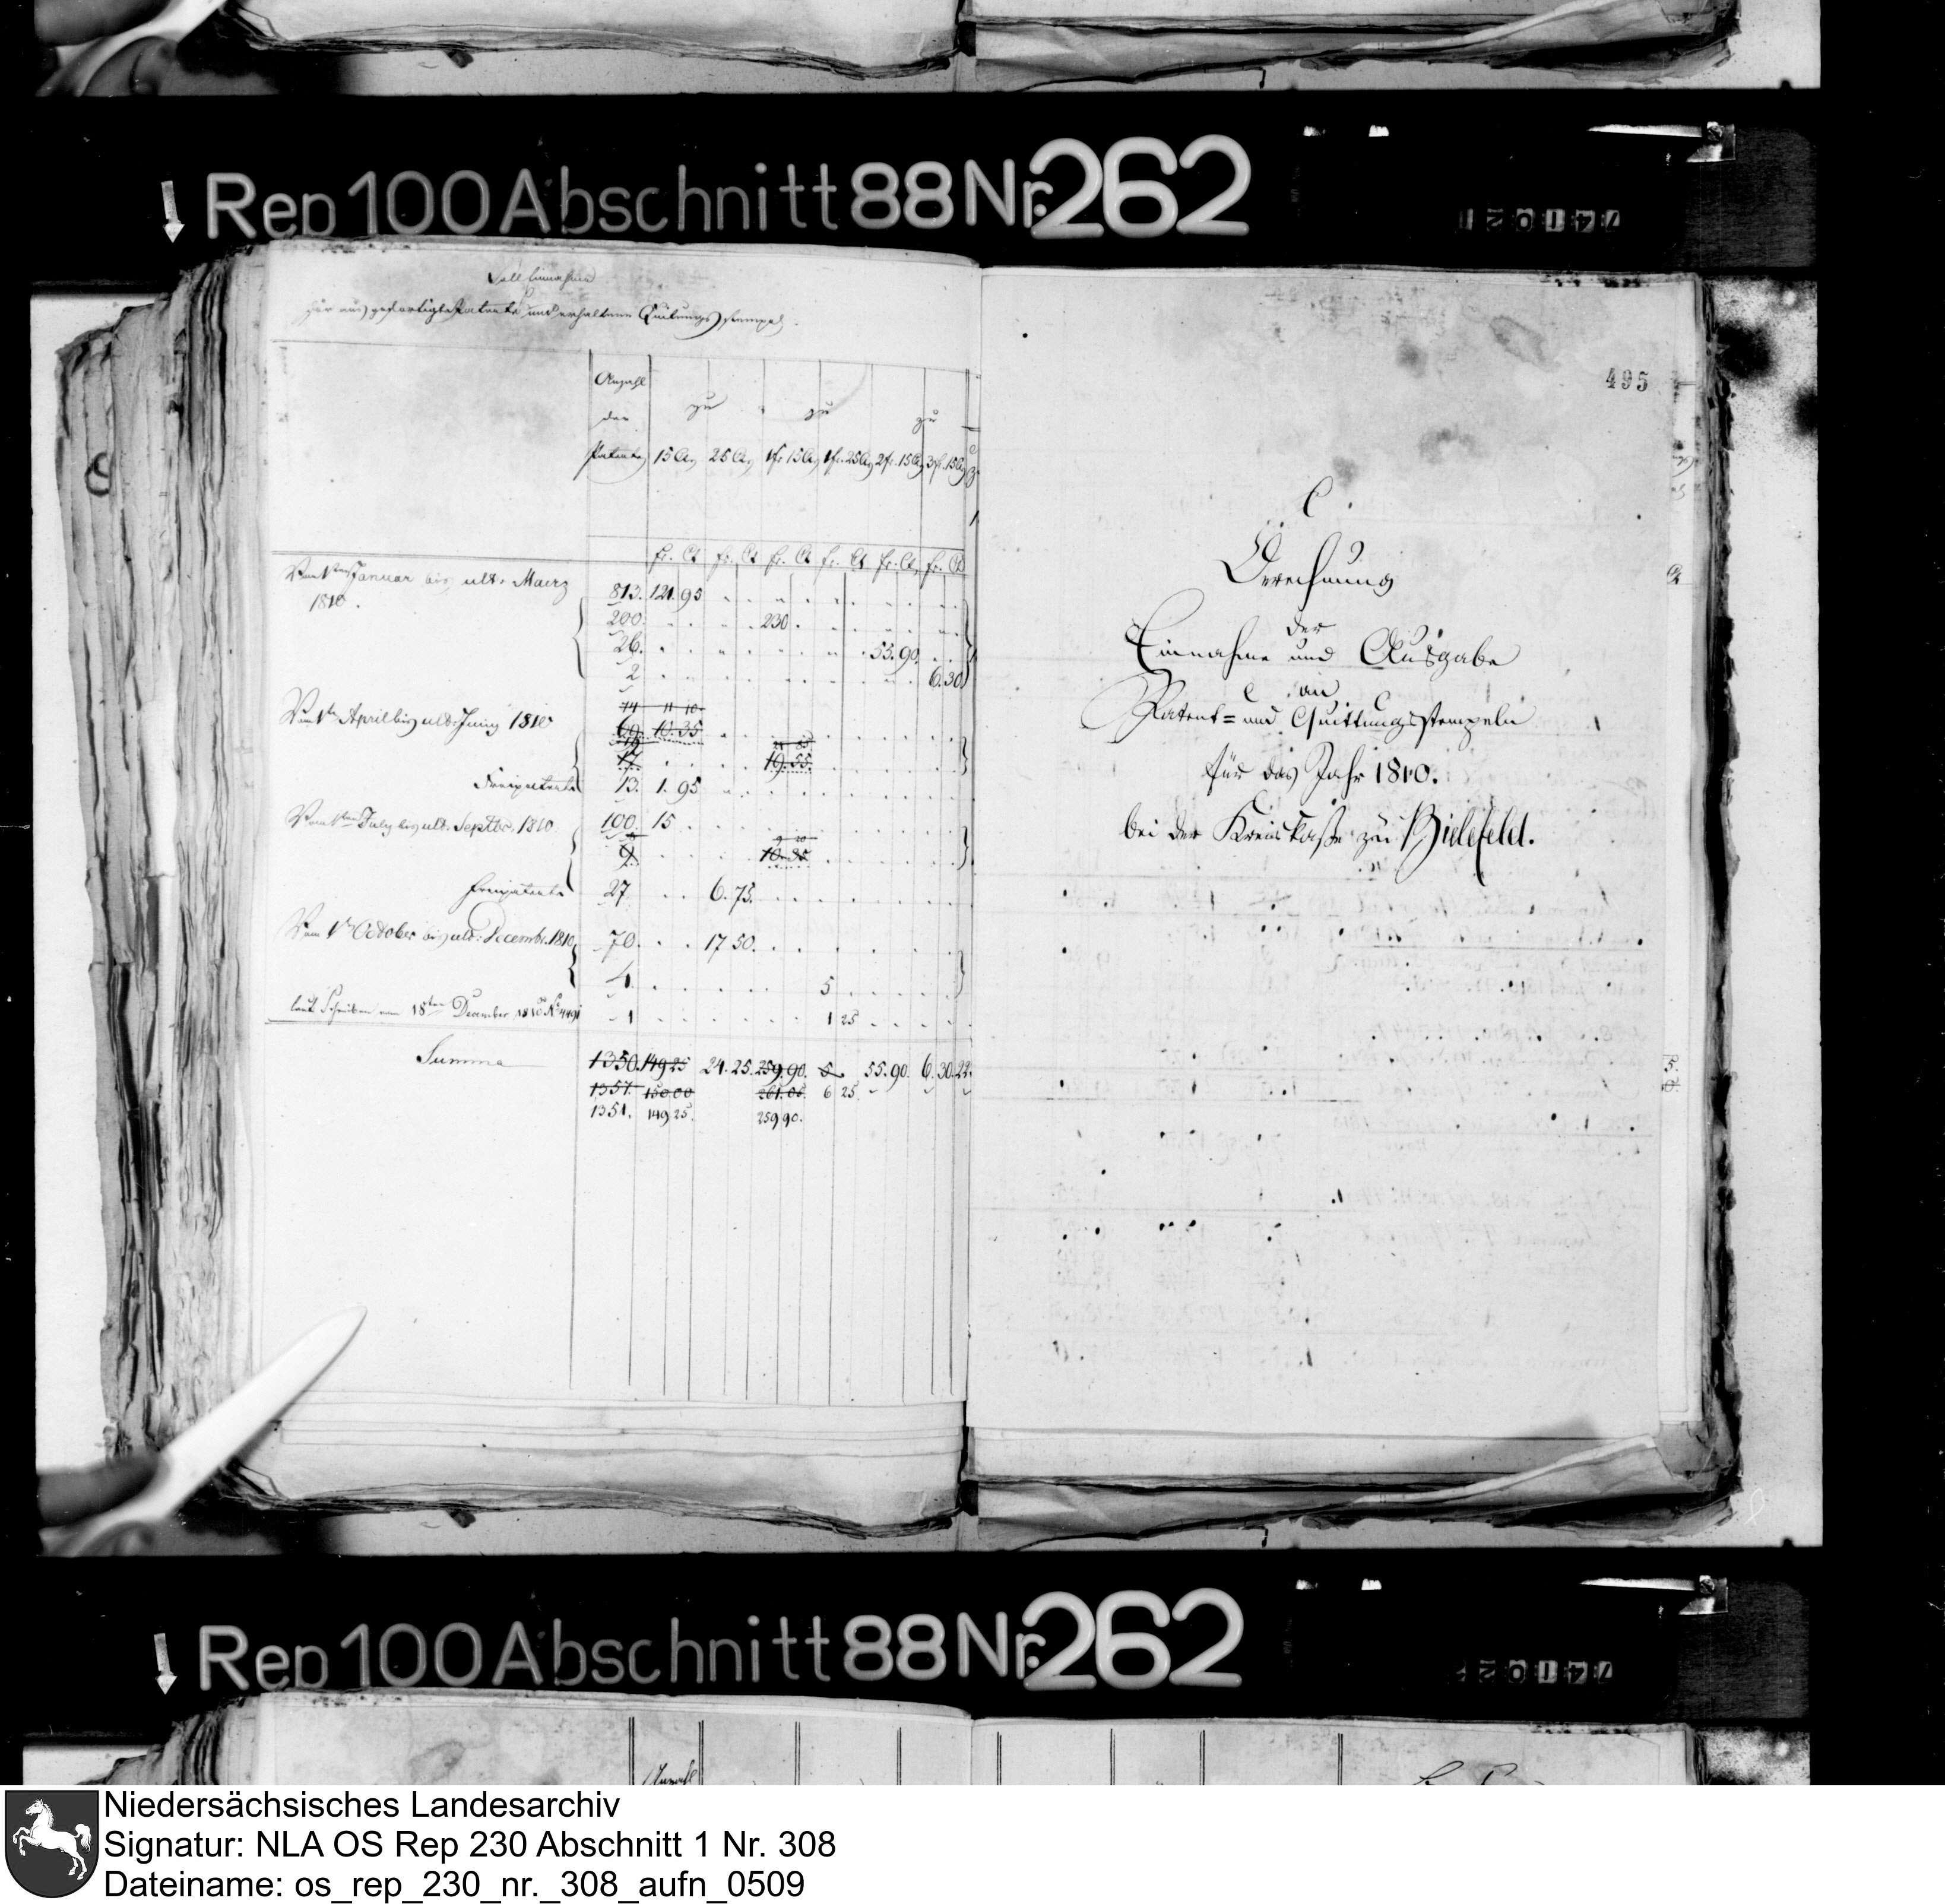 Rep 100 Abschnitt 88 Nr. 262
Soll Einnahme
für ausgefertigte Patente und erhaltene Quitungs stempel
Anzahl der Patente
zu
zu
zu
15 Ct. 25 Ct. 1 fr. 15 Ct. 1 fr. 25 Ct. 2 fr. 15 Ct. 3 fr. 15 Ct.
Fr. Ct. Fr. Ct. Fr. Ct. Fr. Ct. Fr. Ct. Fr. Ct.
Vom 1ten Januar bis ult. Maerz 1810.
813. 121. 95
200. 230.
26. 55. 90.
2 6. 30
Vom 1ten April bis ult. Juny 1810
74 11 10
69 10. 35
19 21 85
17. 19. 55.
Freipatente 13. 1. 95
Vom 1ten July bis ult. Septbr. 1810
100. 15
8 9 20
9. 10. 35
Freipatente 27 6. 75.
Vom 1ten October bis ult. Decembr. 1810
70. 17 50.
4. 5
laut Schreiben vom 18ten December 1810 No 4491
1 1 25
Summa 1350. 149 25 24. 25. 259. 90. 5 55. 90. 6. 30.
1357. 150 00 261. 05. 6 25.
1351. 149 25. 259 90.
495
C.
Berechnung
der
Einnahme und Ausgabe
an
Patent= und Quittungsstempeln
für das Jahr 1810.
bei der Kreis Kasse zu Bielefeld.
Rep 100 Abschnitt 88 Nr. 262
Anzahl
Niedersächsisches Landesarchiv
Signatur: NLA OS Rep 230 Abschnitt 1 Nr. 308
Dateiname: os_rep_230_nr._308_aufn_0509